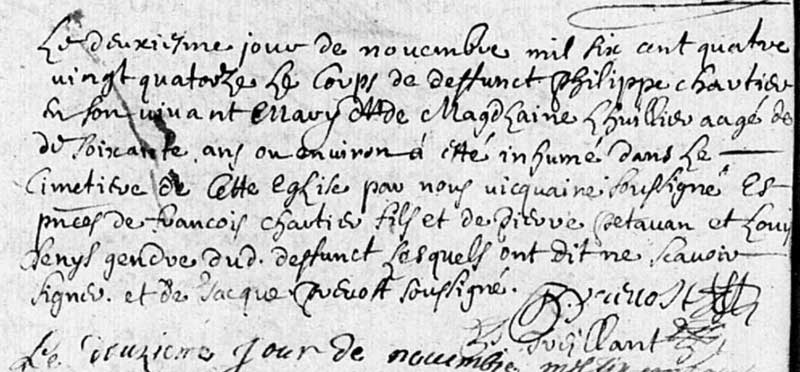 Le deuxiesme jour de novembre mil six cent quatre
vingt quatorze le Corps de deffunct Philippe chartier
en son vivant Mary de Magdelaine Lhuillier aagé de
de soixante ans ou environ á esté inhumé dans le
Cimetiere de Cette Eglise par nous vicquaire soussigné Es
pnces de francois chartier fils et de pierre petavan et Louis
denys gendre dud. deffunct lesquels ont dit ne scavoir
signer. et de Jacque prevost soussigné.
prevost
Le deuzieme Jour de novembre mil six